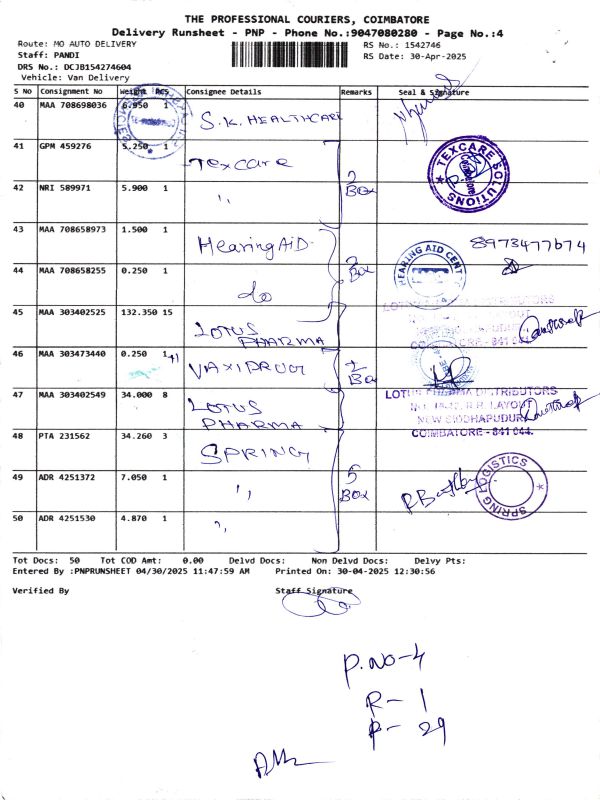 THE PROFESSIONAL COURIERS, COIMBATORE
Delivery Runsheet - PNP - Phone No.:9047080280 - Page No.:4
Route: MO AUTO DELIVERY RS No.: 1542746
Staff: PANDI RS Date: 30-Apr-2025
DRS No.: DCJB154274604
Vehicle: Van Delivery
S No Consignment No Weight PCS Consignee Details Remarks Seal & Signature
40 MAA 708698036 6.950 1 S.K. HEALTHCARE
41 GPM 459276 5.250 1 Texcare
TEXCARE SOLUTIONS Coimbatore
42 NRI 589971 5.900 1 ,, 2 Box
43 MAA 708658973 1.500 1 HearingAiD 8973477674
HEARING AID CENTRE
44 MAA 708658255 0.250 1 do 2 Box
45 MAA 303402525 132.350 15 LOTUS PHARMA
LOTUS PHARMA DISTRIBUTORS
COIMBATORE - 641 044.
46 MAA 303473440 0.250 1 VAXIDRUG Box
47 MAA 303402549 34.000 8 LOTUS PHARMA
LOTUS PHARMA DISTRIBUTORS
R.R. LAYOUT
NEW SIDDHAPUDUR
COIMBATORE - 641 044.
48 PTA 231562 34.260 3 SPRING
49 ADR 4251372 7.050 1 ,, 5 Box
SPRING LOGISTICS
50 ADR 4251530 4.870 1 ,,
Tot Docs: 50 Tot COD Amt: 0.00 Delvd Docs: Non Delvd Docs: Delvy Pts:
Entered By :PNPRUNSHEET 04/30/2025 11:47:59 AM Printed On: 30-04-2025 12:30:56
Verified By Staff Signature
P.NO-4
R- 1
P- 29